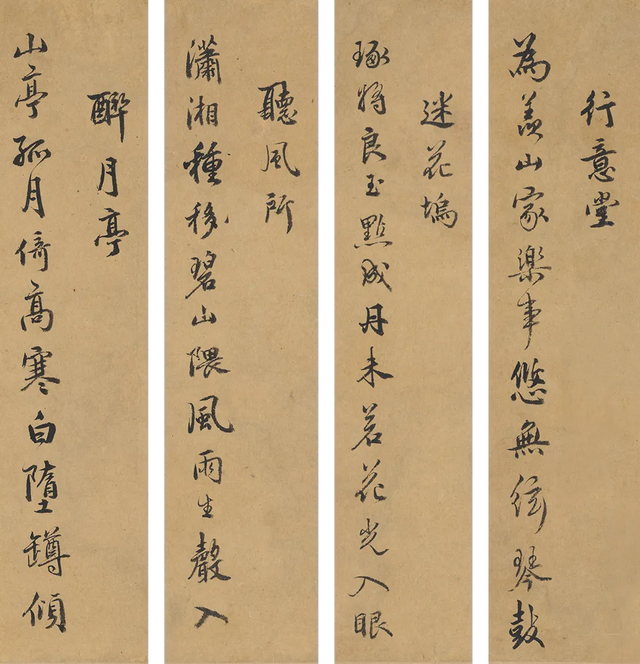 行意堂
為羨山家樂事悠無絃琴鼓
迷花塢
琢將良玉點成丹未若花光入眼
聽風所
瀟湘種移碧山隈風雨生聲入
醉月亭
山亭孤月倚高寒白墮罇傾